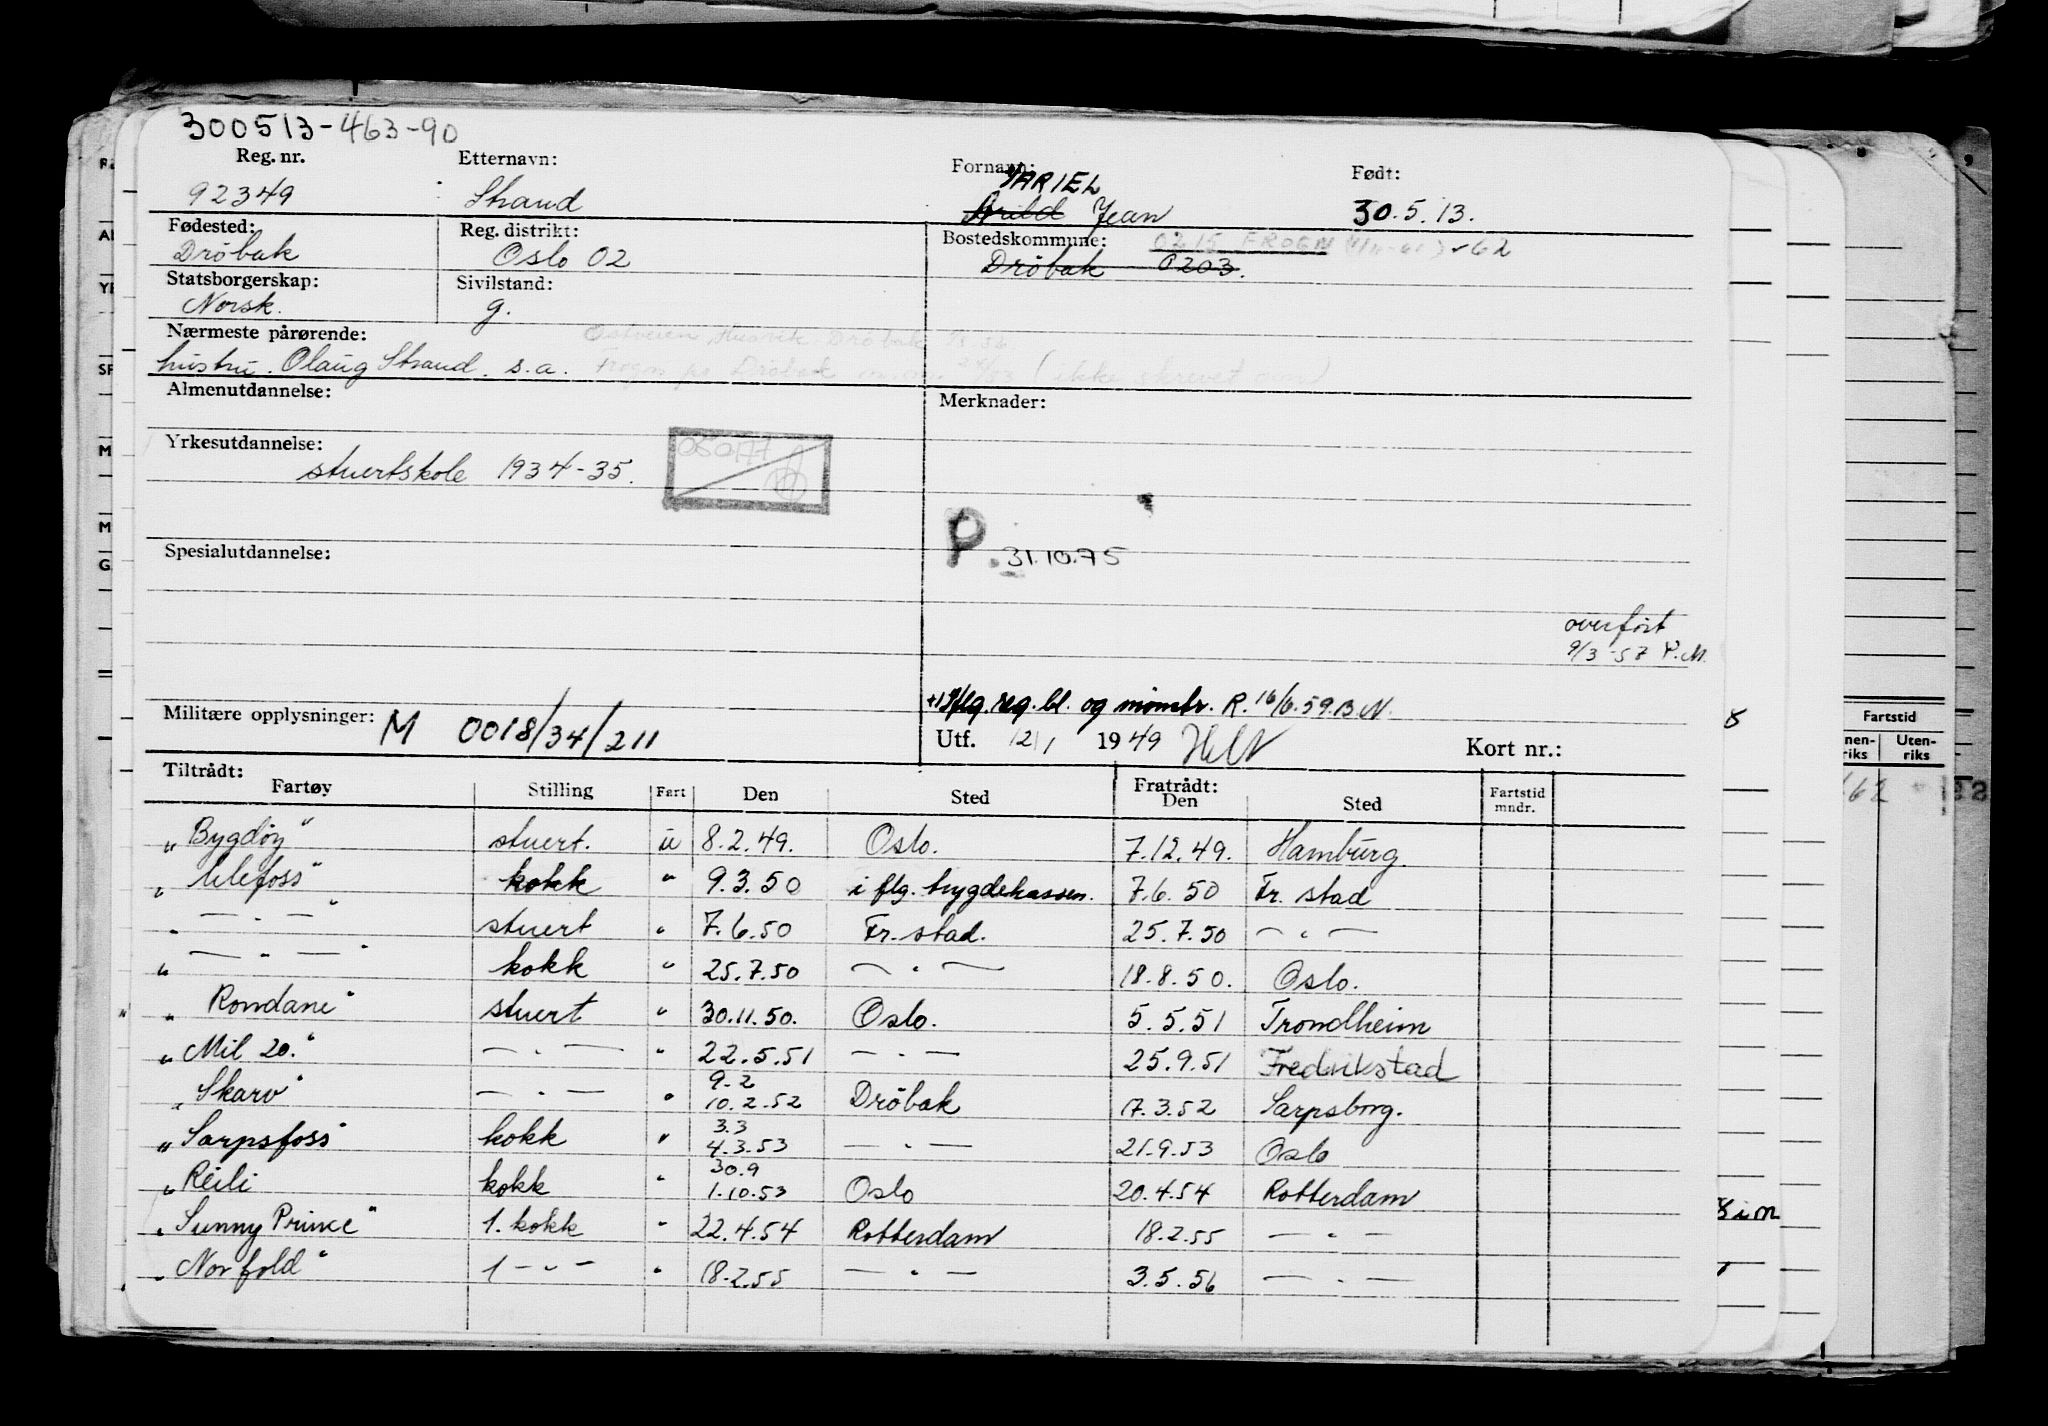 300513-463-90
Reg. nr. Etternavn: Fornavn: Født:
YARIEL
92349 Strand Arild Jean 30.5.13.
Fødested: Reg. distrikt: Bostedskommune: 0215 FROGN
Drøbak Oslo 02 Drøbak 0203.
Statsborgerskap: Sivilstand:
Norsk. g.
Nærmeste pårørende:
hustru. Olaug Strand. s.a.
Almenutdannelse: Merknader:
Yrkesutdannelse:
stuertskole 1934-35.
P. 31.10.75
Spesialutdannelse:
overført
9/3-57 P.M.
flg. reg. bl. og mønstr. R. 16/6.59.B.N.
Militære opplysninger: M 0018/34/211
Utf. 12/1 1949 Kort nr.:
Tiltrådt: Fratrådt:
Fartøy Stilling Fart Den Sted Den Sted Fartstid mndr.
„ Bygdøy" stuert. u 8.2.49. Oslo. 7.12.49. Hamburg.
„ Ulefoss" kokk " 9.3.50 i flg. trygdekassen. 7.6.50 Fr. stad
„ — " — " stuert " 7.6.50 Fr. stad. 25.7.50 — " —
„ — " — " kokk " 25.7.50 — " — 18.8.50. Oslo.
„ Rondane" stuert " 30.11.50. Oslo. 5.5.51 Trondheim
„ Mil 20." — " — " 22.5.51 — " — 25.9.51 Fredrikstad
9.2
„ Skarv" — " — " 10.2.52 Drøbak 17.3.52 Sarpsborg.
3.3
„ Sarpsfoss" kokk " 4.3.53 — " — 21.9.53 Oslo
30.9
„ Reili kokk " 1.10.53 Oslo 20.4.54 Rotterdam
„ Sunny Prince" 1. kokk " 22.4.54 Rotterdam 18.2.55 — " —
„ Norfold" 1 — " — " 18.2.55 — " — 3.5.56 — " —
Fartstid
Uten-
riks